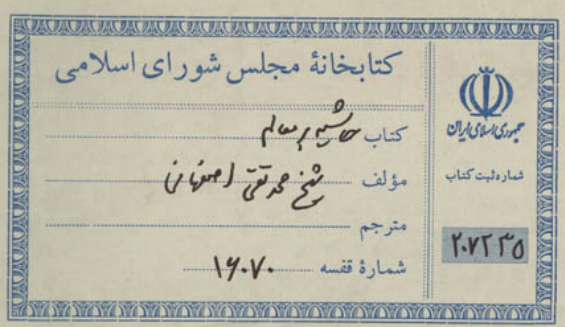 کتابخانهٔ مجلس شورای اسلامی
کتاب حاشیه بر معالم
مؤلف شیخ محمد تقی اصفهانی
مترجم
شمارهٔ قفسه ۱۶۰۷۰
جمهوری اسلامی ایران
شماره ثبت کتاب
۲۰۷۲۳۵